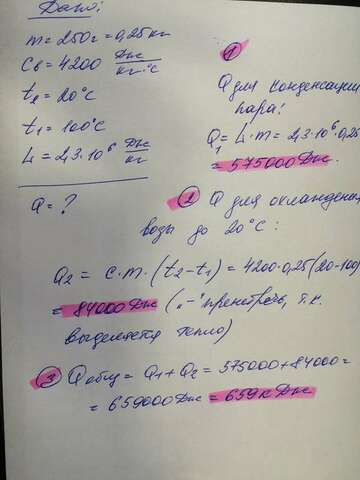 Дано:
m = 250г = 0,25кг
Cв = 4200 Дж/кг·°C
t2 = 20°C
t1 = 100°C
L = 2,3·10⁶ Дж/кг
Q = ?
1
Q для конденсации
пара:
Q1 = L·m = 2,3·10⁶·0,
= 575000 Дж.
2 Q для охлаждени
воды до 20°C:
Q2 = c·m·(t2-t1) = 4200·0,25(20-100)
= 84000 Дж („-" пренебречь, т.к.
выделяется тепло)
3 Qобщ = Q1 + Q2 = 575000 + 84000 =
= 659000 Дж = 659 кДж